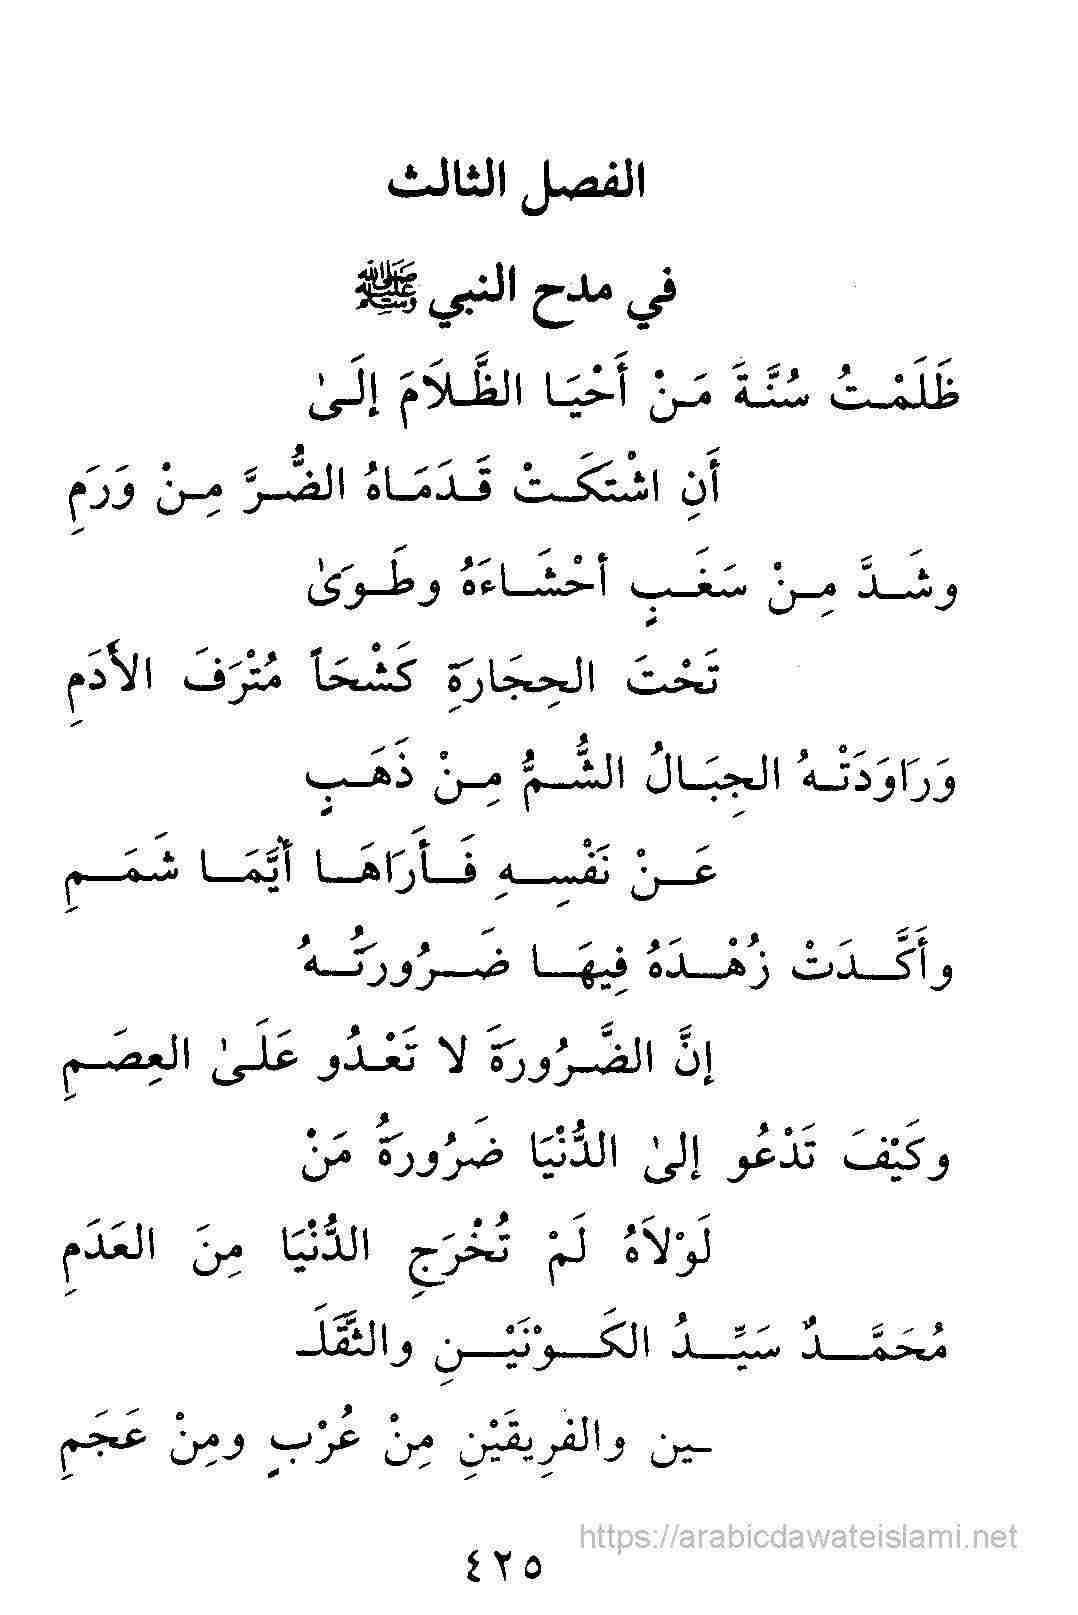 الفصل الثالث
في مدح النبي ﷺ
ظَلَمْتُ سُنَّةَ مَنْ أَحْيَا الظَّلاَمَ إلَىٰ
أَنِ اشْتَكَتْ قَدَمَاهُ الضُّرَّ مِنْ وَرَمِ
وشَدَّ مِنْ سَغَبٍ أحْشَاءَهُ وطَوَىٰ
تَحْتَ الحِجَارَةِ كَشْحَاً مُتْرَفَ الأَدَمِ
وَرَاوَدَتْهُ الجِبَالُ الشُّمُّ مِنْ ذَهَبٍ
عَنْ نَفْسِهِ فَأَرَاهَا أَيَّمَا شَمَمِ
وأَكَّدَتْ زُهْدَهُ فِيهَا ضَرُورَتُهُ
إنَّ الضَّرُورَةَ لا تَعْدُو عَلَىٰ العِصَمِ
وكَيْفَ تَدْعُو إلىٰ الدُّنْيَا ضَرُورَةُ مَنْ
لَوْلاَهُ لَمْ تُخْرَجِ الدُّنْيَا مِنَ العَدَمِ
مُحَمَّدٌ سَيِّدُ الكَوْنَيْنِ والثَّقَلَـ
ـين والفَرِيقَيْنِ مِنْ عُرْبٍ ومِنْ عَجَمِ
https://arabicdawateislami.net
٤٢٥